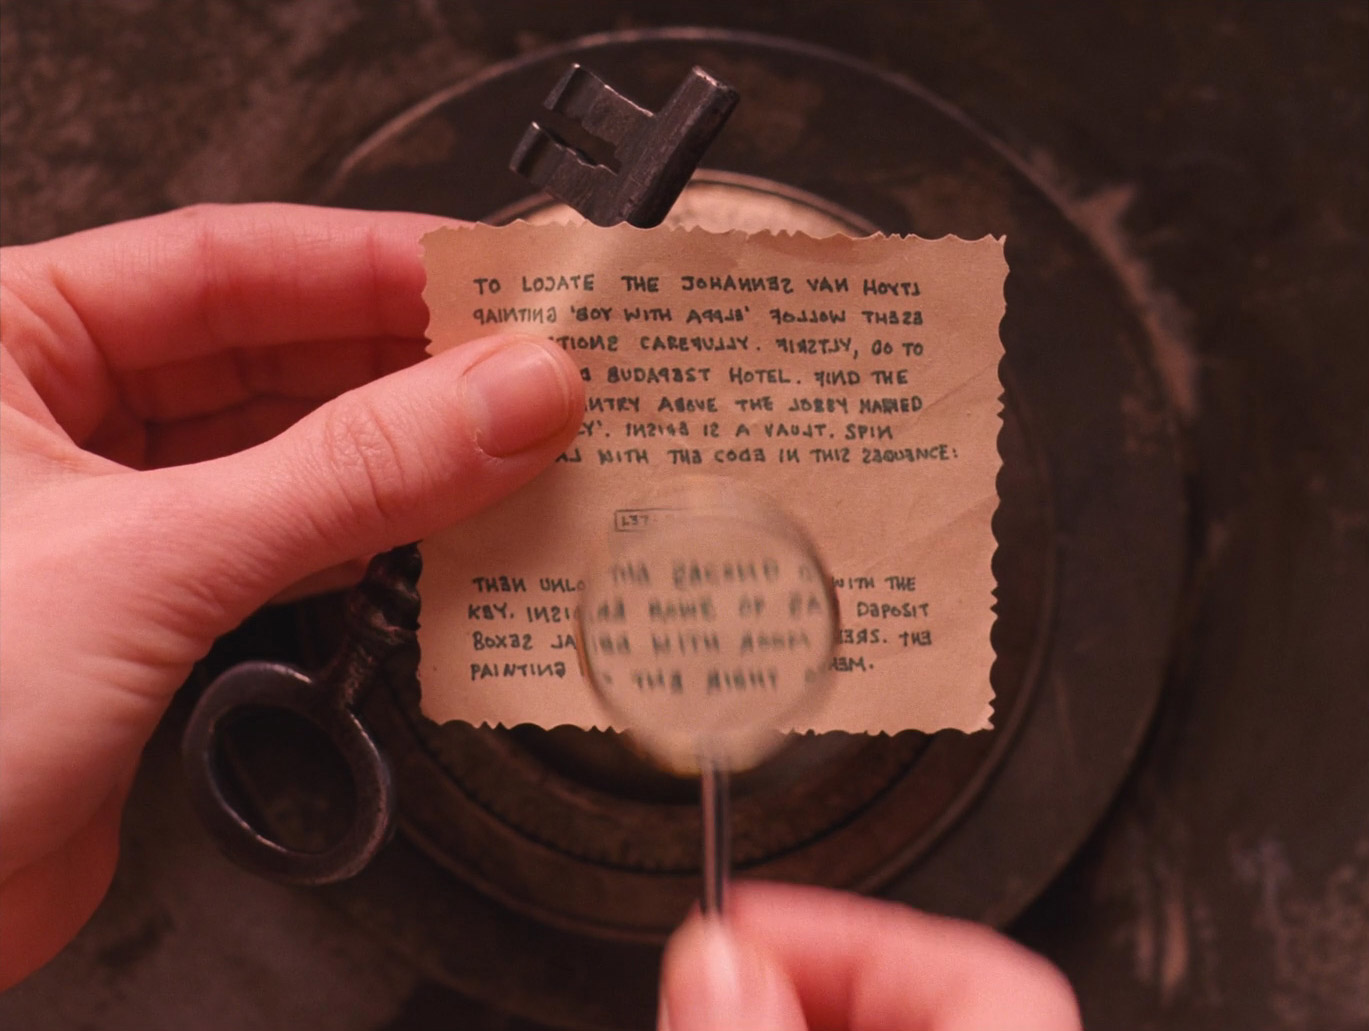 TO LOCATE THE JOHANNES VAN HOYTL
PAINTING 'BOY WITH APPLE' FOLLOW THESE
TIONS CAREFULLY. FIRSTLY, GO TO
BUDAPEST HOTEL. FIND THE
NTRY ABOVE THE LOBBY MARKED
INSIDE IS A VAULT. SPIN
WITH THE CODE IN THIS SEQUENCE:
L37
THEN UNLO THE SECOND WITH THE
KEY. INSI ROWS OF DEPOSIT
BOXES LA WITH ROOM ERS. THE
PAINTING THE RIGHT EM.